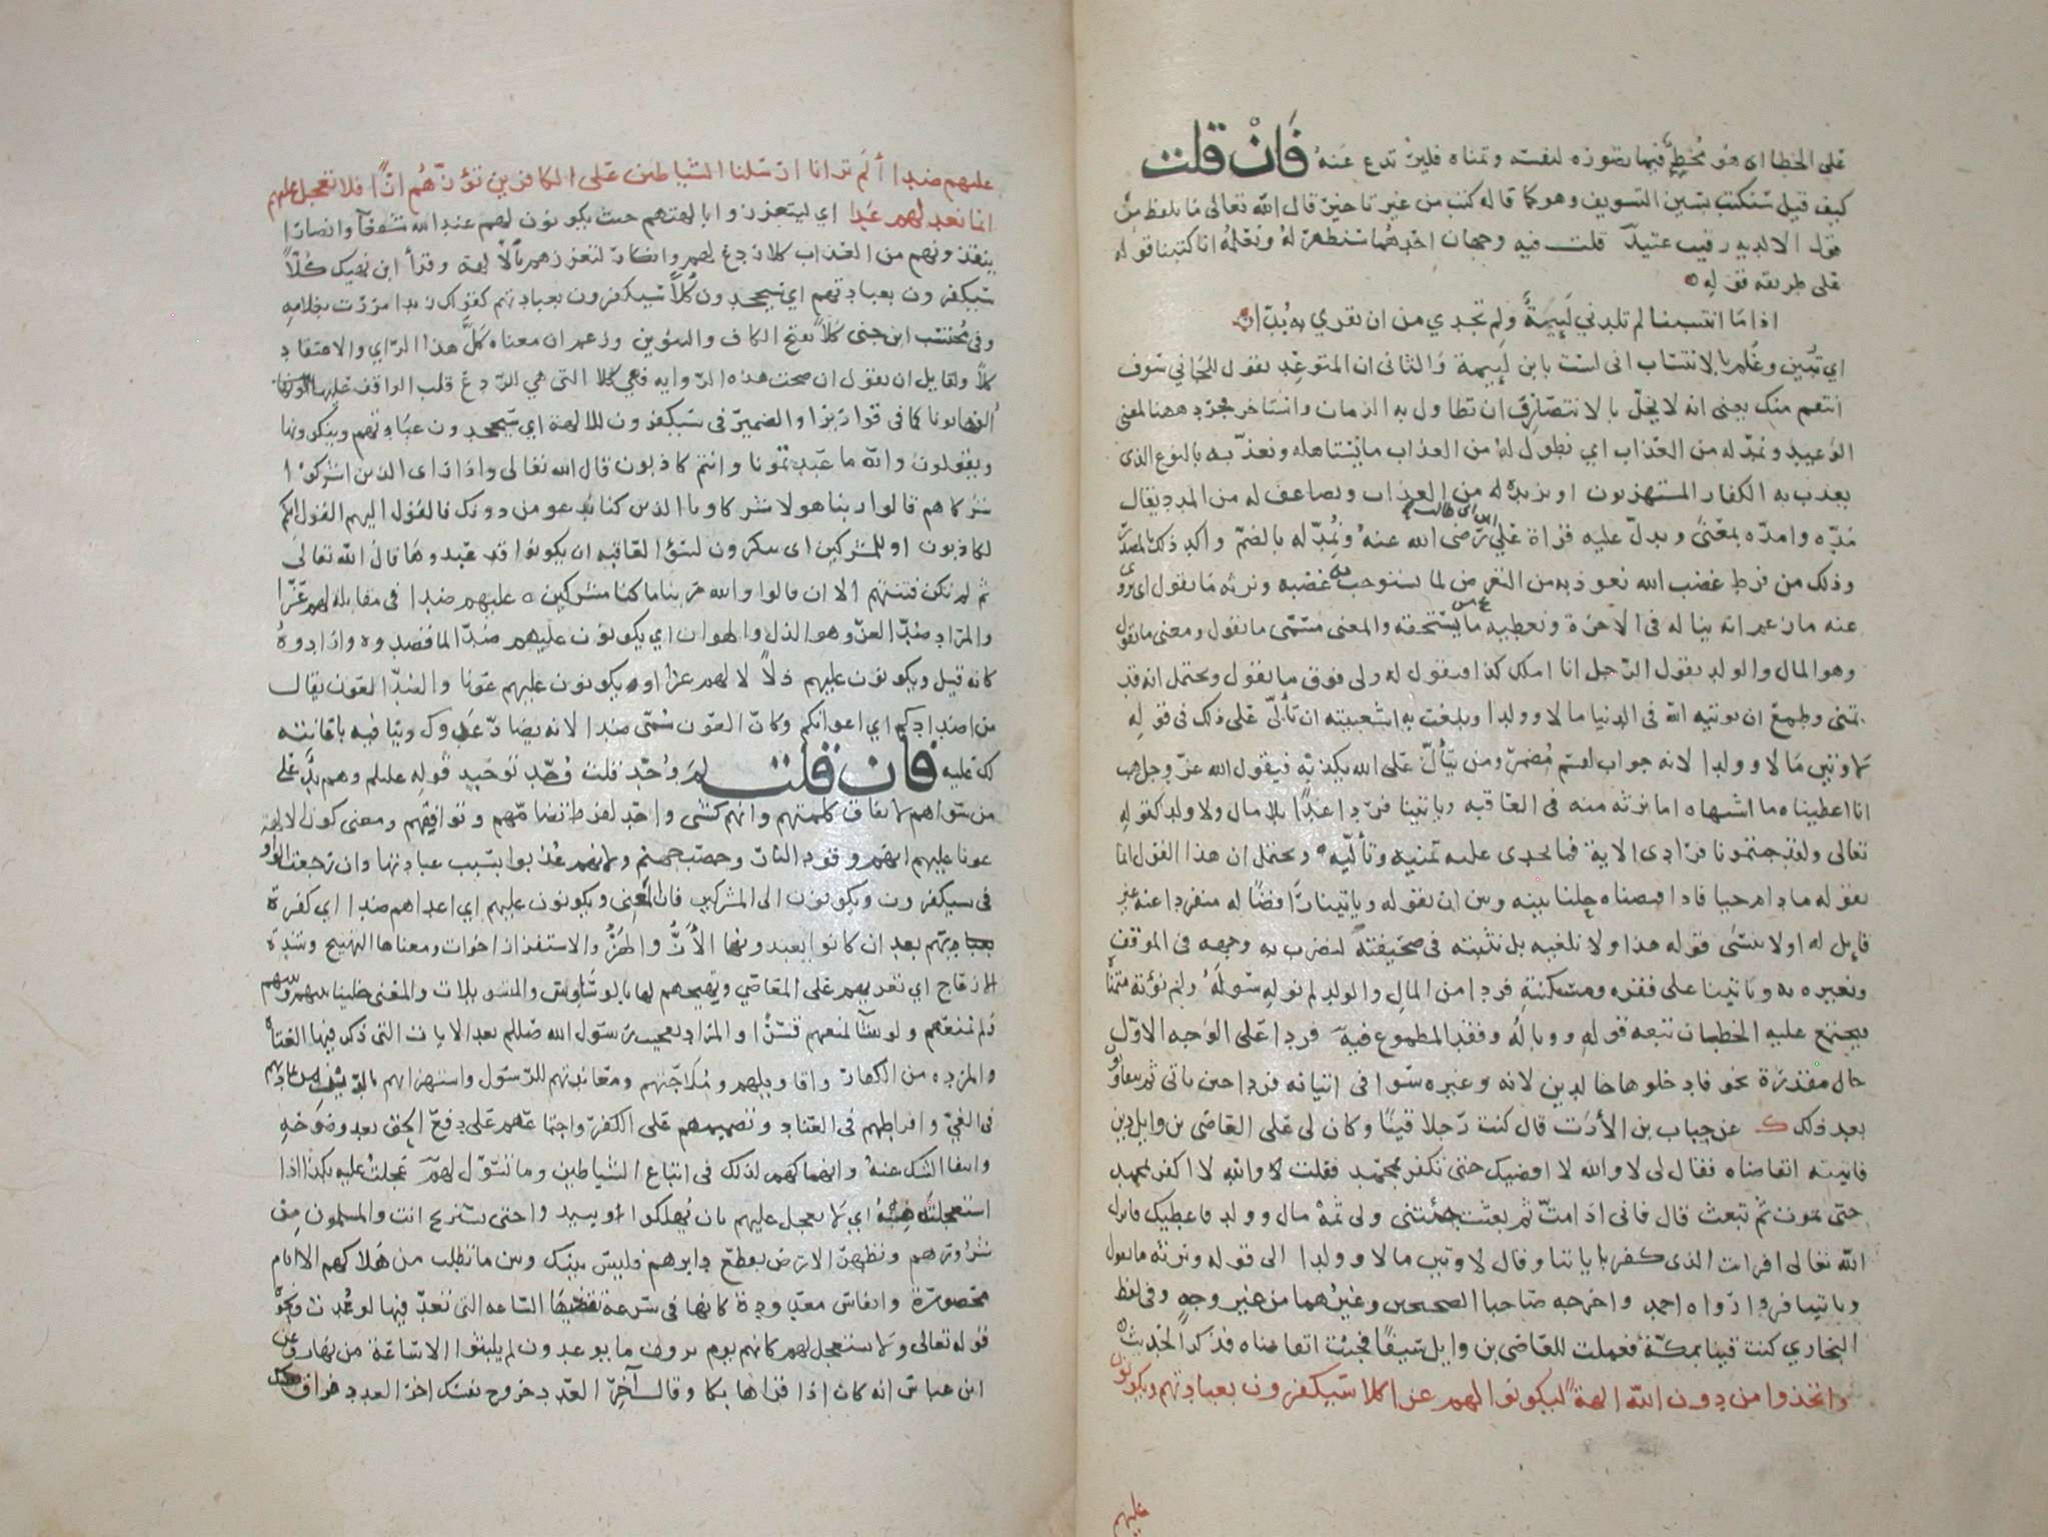 على الخطا اي هو مخطئ فيما تصوره لنفسه وتمناه فليرتدع عنه فان قلت
كيف قيل سنكتب بسين التسويف وهو كما قاله كتب من غير تاخير قال الله تعالى ما يلفظ من
قول الا لديه رقيب عتيد قلت فيه وجهان احدهما سنظهر له ونعلمه انا كتبنا قوله
على طريقه قوله
اذا ما انتسبنا لم تلدني لئيمة ولم تجدي من ان تقري به بدا
اي تبين وعلم بالانتساب اني لست بابن لئيمة والثاني ان المتوعد يقول للجاني سوف
انتقم منك يعني انه لا يخل بالانتصار وان تطاول به الزمان واستاخر فجرد ههنا لمعنى
الوعيد ونمد له من العذاب اي نطول له من العذاب ما يستاهله ونعذبه بالنوع الذي
يعذب به الكفار المستهزيون او نزيده له من العذاب ونضاعف له من المدد يقال
مده وامده بمعنى ويدل عليه قراة علي ابن ابي طالب رضي الله عنه ونمد له بالضم واكد ذلك بالمصدر
وذلك من فرط غضب الله نعوذ به من التعرض لما نستوجب به غضبه ونرثه ما يقول اي نزوي
عنه ما زعم انه يناله في الاخرة ونعطيه من يستحقه والمعنى مسمى ما يقول ومعنى ما يقول
وهو المال والولد يقول الرجل انا املك كذا فيقول له ولي فوق ما تقول ويحتمل انه قد
تمنى وطمع ان يوتيه الله في الدنيا مالا وولدا وبلغت به اشعبيته ان تألى على ذلك في قوله
لاوتين مالا وولدا لانه جواب لقسم مضمر ومن يتأل على الله يكذبه فيقول الله عز وجل هب
انا اعطيناه ما اشتهاه اما نرثه منه في العاقبه وياتينا فردا غدا بلا مال ولا ولد كقوله
تعالى ولقد جئتمونا فرادى الاية فما يجدي عليه تمنيه وتأليه ويحتمل ان هذا القول انما
يقوله ما دام حيا فاذا قبضناه حلنا بينه وبين ان يقوله وياتينا رافضا له منفردا عنه غير
قايل له او لا ننسى قوله هذا ولا نلغيه بل نثبته في صحيفته لنضرب به وجهه في الموقف
ونعيره به وياتينا على فقره ومسكنته فردا من المال والولد لم نوله سوله ولم نؤته متمناه
فيجتمع عليه الخطبان تبعه قوله ووباله وفقد المطموع فيه فردا على الوجه الاول
حال مقدرة نحو فادخلوها خالدين لانه وغيره سوا في اتيانه فردا حين ياتي ثم يتفاوتون
بعد ذلك ك عن خباب بن الأرت قال كنت رجلا قينا وكان لي على العاصي بن وايل دين
فاتيته اتقاضاه فقال لي لا والله لا اقضيك حتى تكفر بمحمد فقلت لا والله لا اكفر بمحمد
حتى تموت ثم تبعث قال فاني اذا مت ثم بعثت جئتني ولي ثمه مال وولد فاعطيك فانزل
الله تعالى افرايت الذي كفر باياتنا وقال لاوتين مالا وولدا الى قوله ونرثه ما يقول
وياتينا فردا رواه احمد واخرجه صاحبا الصحيحين وغيرهما من غير وجه وفي لفظ
البخاري كنت قينا بمكة فعملت للعاصي بن وايل سيفا فجئت اتقاضاه فذكر الحديث
واتخذوا من دون الله الهة ليكونوا لهم عزا كلا سيكفرون بعبادتهم ويكونون
عليهم
عليهم ضدا ألم تر انا ارسلنا الشياطين على الكافرين تؤزهم ازا فلا تعجل عليهم
انما نعد لهم عدا اي ليتعززوا بالهتهم حيث يكونون لهم عند الله شفعآ وانصارا
ينقذونهم من العذاب كلا ردع لهم وانكار لتعززهم بالالهة وقرأ ابن نهيك كلا
سيكفرون بعبادتهم اي سيجحدون كلا سيكفرون بعبادتهم كقولك زيدا مررت بغلامه
وفي محتسب ابن جني كلا بفتح الكاف والتنوين وزعم ان معناه كل هذا الراي والاعتقاد
كلا ولقايل ان يقول ان صحت هذه الرواية فهي كلا التي هي للردع قلب الواقف عليها
الفها نونا كما في قواريرا والضمير في سيكفرون للالهة اي سيجحدون عبادتهم وينكرونها
ويقولون والله ما عبدتمونا وانتم كاذبون قال الله تعالى واذا راى الذين اشركوا
شركاهم قالوا ربنا هولا شركاونا الذين كنا ندعو من دونك فالقوا اليهم القول انكم
لكاذبون او للمشركين اي ينكرون لسؤ العاقبه ان يكونوا قد عبدوها قال الله تعالى
ثم لم تكن فتنتهم الا ان قالوا والله ربنا ما كنا مشركين عليهم ضدا في مقابلة لهم عزا
والمراد ضد العز وهو الذل والهوان اي يكونون عليهم ضدا لما قصدوه وارادوه
كانه قيل ويكونون عليهم ذلا لا لهم عزا او يكونون عليهم عونا والضد العون يقال
من اضدادكم اي اعوانكم وكان العون سمي ضدا لانه يضاد عدوك وينافيه باعانته
لك عليه فان قلت لم وحد قلت وحد توحيد قوله عليلم وهم يد على
من سواهم لاتفاق كلمتهم وانهم كشى واحد لفرط تضامهم وتوافقهم ومعنى كون الالهة
عونا عليهم انهم وقود النار وحصب جهنم ولانهم عذبوا بسبب عبادتها وان رجعت الواو
في سيكفرون ويكونون الى المشركين فان المعنى ويكونون عليهم اي اعداهم ضدا اي كفرة
بهم بعد ان كانوا يعبدونها الأز والهز والاستفزاز اخوات ومعناها التهييج وشدة
الازعاج اي تغريهم على المعاصي وتهيجهم لها بالوساوس والتسويلات والمعنى خلينا بينهم وبينهم
ولم نمنعهم ولو شآ لمنعهم قسرا والمراد تعجيب رسول الله صللم بعد الايات التي ذكر فيها العتاة
والمردة من الكفار واقاويلهم وملاجتهم ومعاندتهم للرسول واستهزاهم بالدين من تماديهم
في الغي وافراطهم في العناد وتصميمهم على الكفر واجتماعهم على دفع الحق بعد وضوحه
وانتفا الشك عنه وانهماكهم لذلك في اتباع الشياطين وما تسول لهم عجلت عليه بكذا اذا
استعجلته منه اي لا تعجل عليهم بان يهلكوا او يبيدوا حتى تستريح انت والمسلمون من
شرورهم وتطهر الارض بقطع دابرهم فليس بينك وبين ما تطلب من هلاكهم الا ايام
محصورة وانفاس معدودة كانها في سرعة تقضيها الساعه التي تعد فيها لو عدت ونحوه
قوله تعالى ولا تستعجل لهم كانهم يوم يرون ما يوعدون لم يلبثوا الا ساعة من نهار وعن
ابن عباس انه كان اذا قراها بكا وقال آخر العدد خروج نفسك اخر العدد فراق اهلك